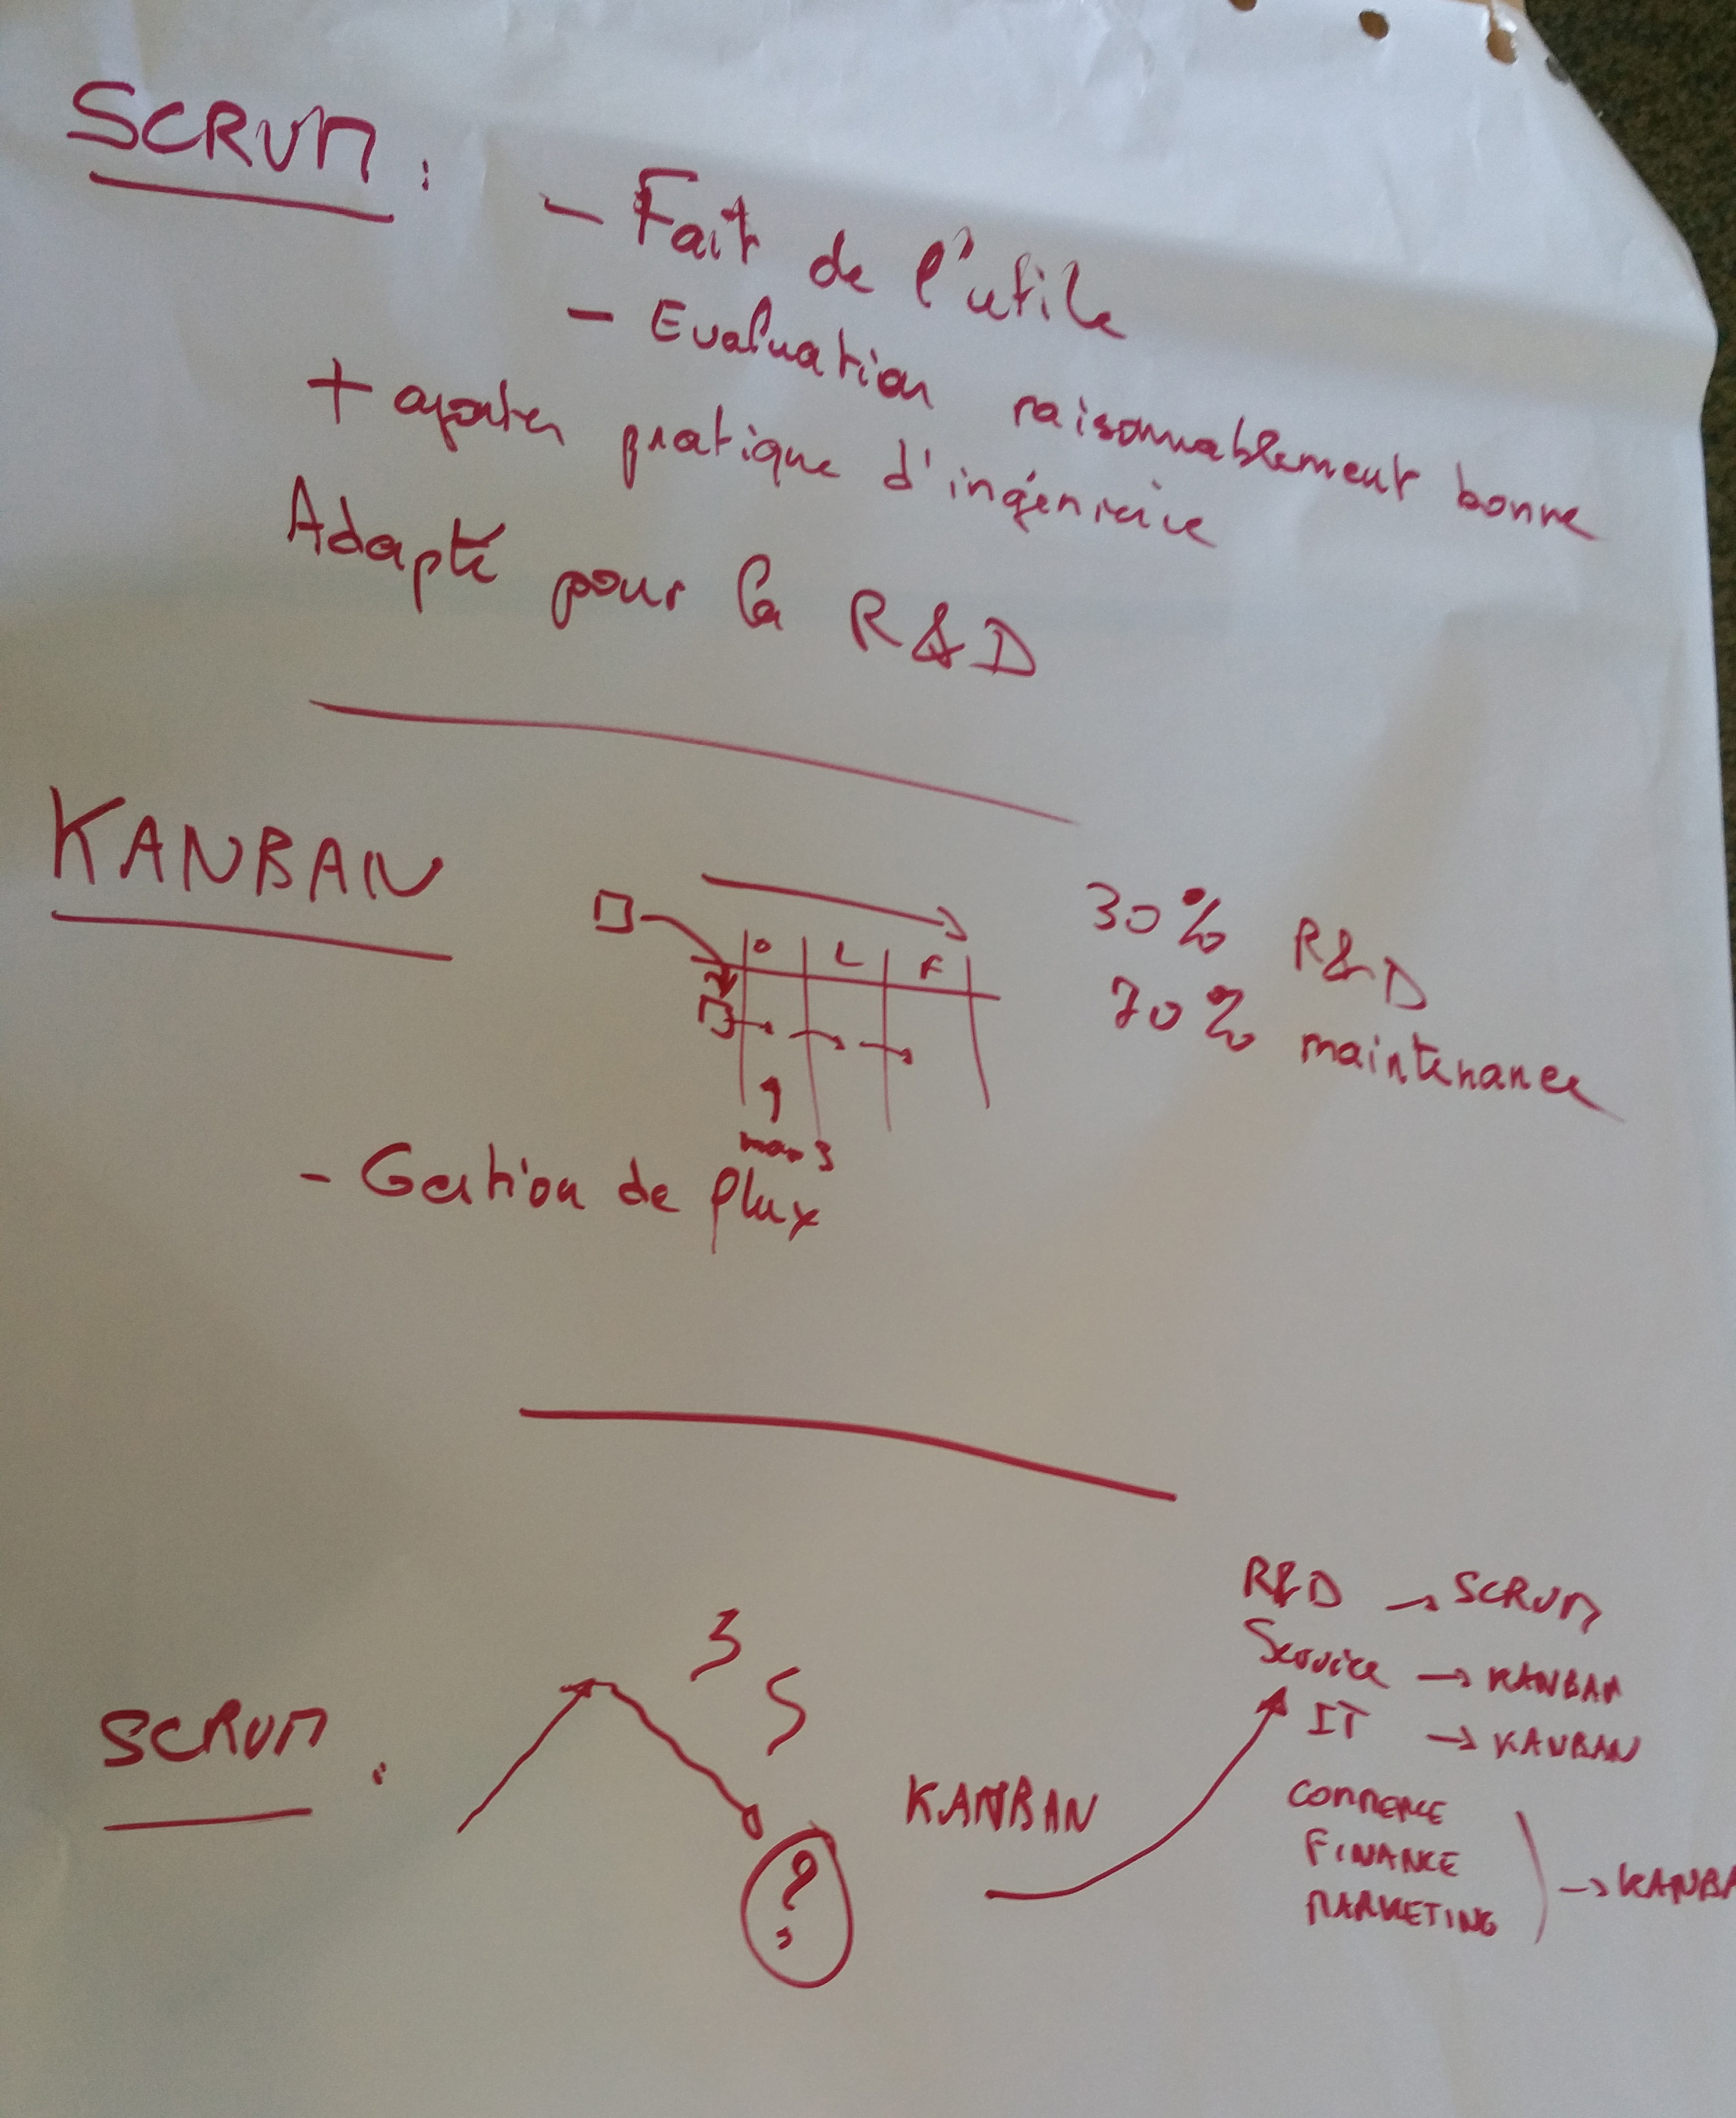 SCRUM :
- Fait de l'utile
- Evaluation raisonnablement bonne
+ ajouter pratique d'ingénierie
Adapté pour la R&D
KANBAN
O L F
max 3
30% R&D
70% maintenance
- Gestion de flux
SCRUM :
3 5
?
KANBAN
R&D → SCRUM
Service → KANBAN
IT → KANBAN
COMMERCE
FINANCE
MARKETING
→ KANBA